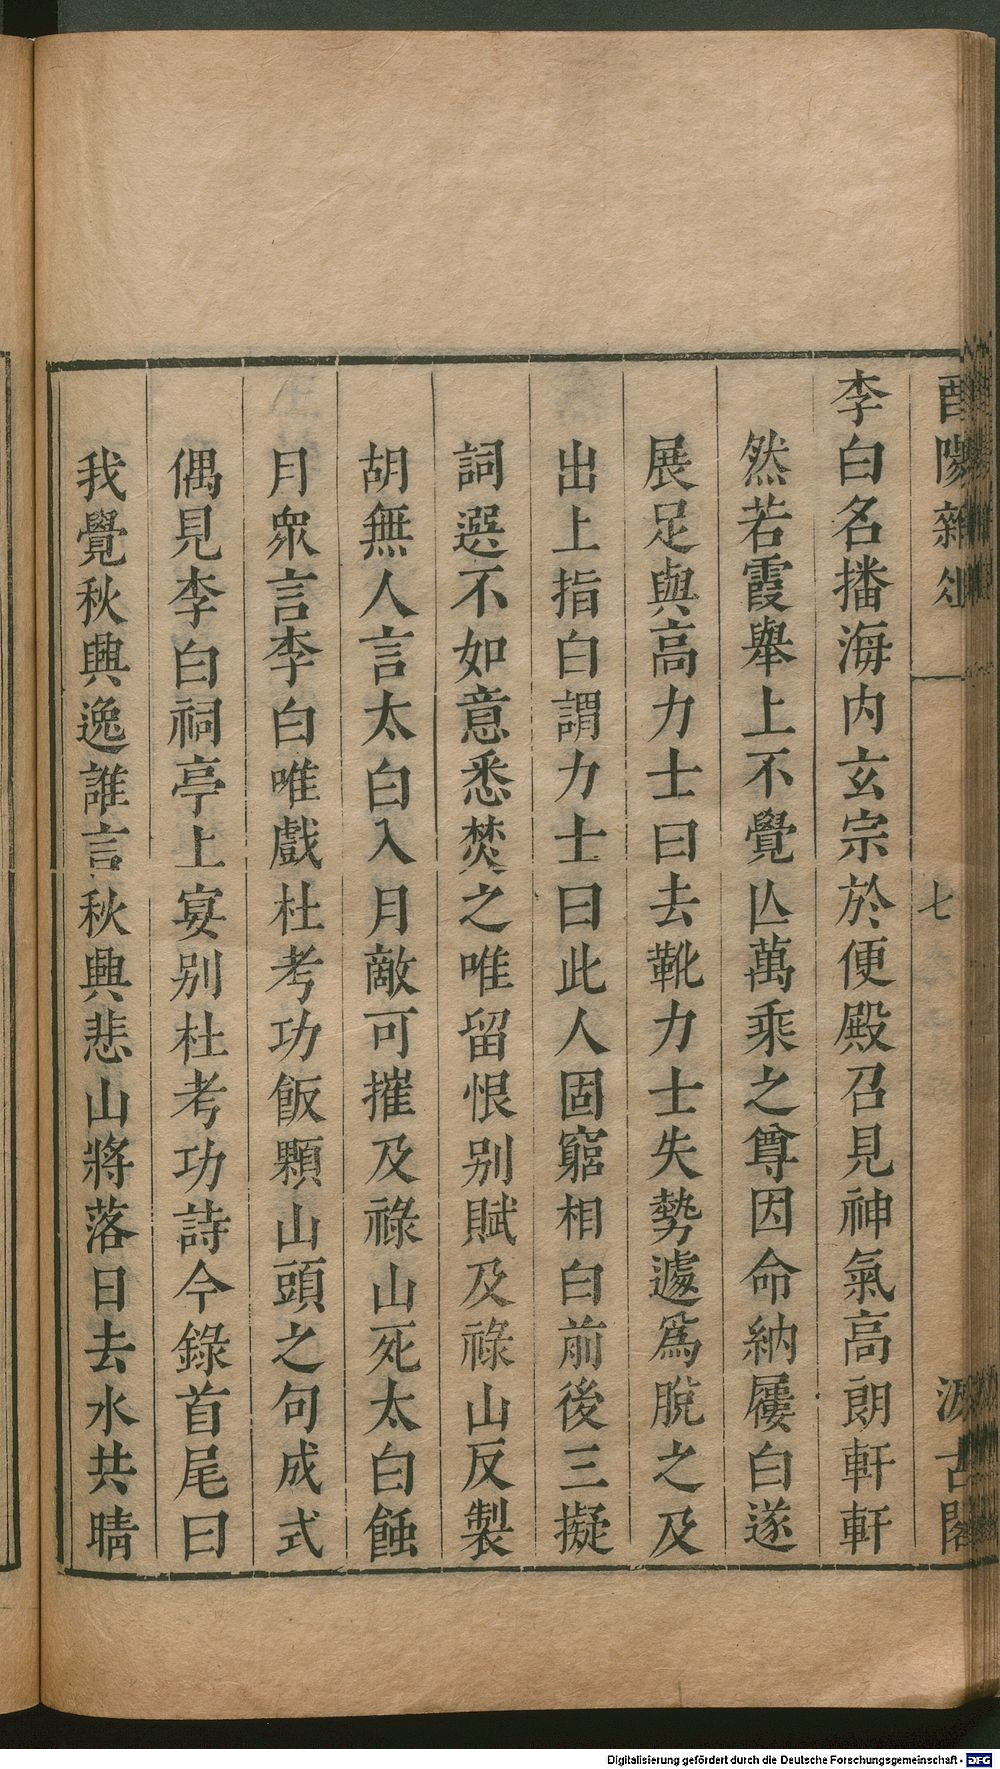 酉陽雜俎
七
汲古閣
李白名播海內玄宗於便殿召見神氣高朗軒軒
然若霞舉上不覺亾萬乘之尊因命納屨白遂
展足與高力士曰去靴力士失勢遽爲脫之及
出上指白謂力士曰此人固窮相白前後三擬
詞選不如意悉焚之唯留恨別賦及祿山反製
胡無人言太白入月敵可摧及祿山死太白蝕
月衆言李白唯戲杜考功飯顆山頭之句成式
偶見李白祠亭上宴別杜考功詩今錄首尾曰
我覺秋興逸誰言秋興悲山將落日去水共晴
Digitalisierung gefördert durch die Deutsche Forschungsgemeinschaft - DFG